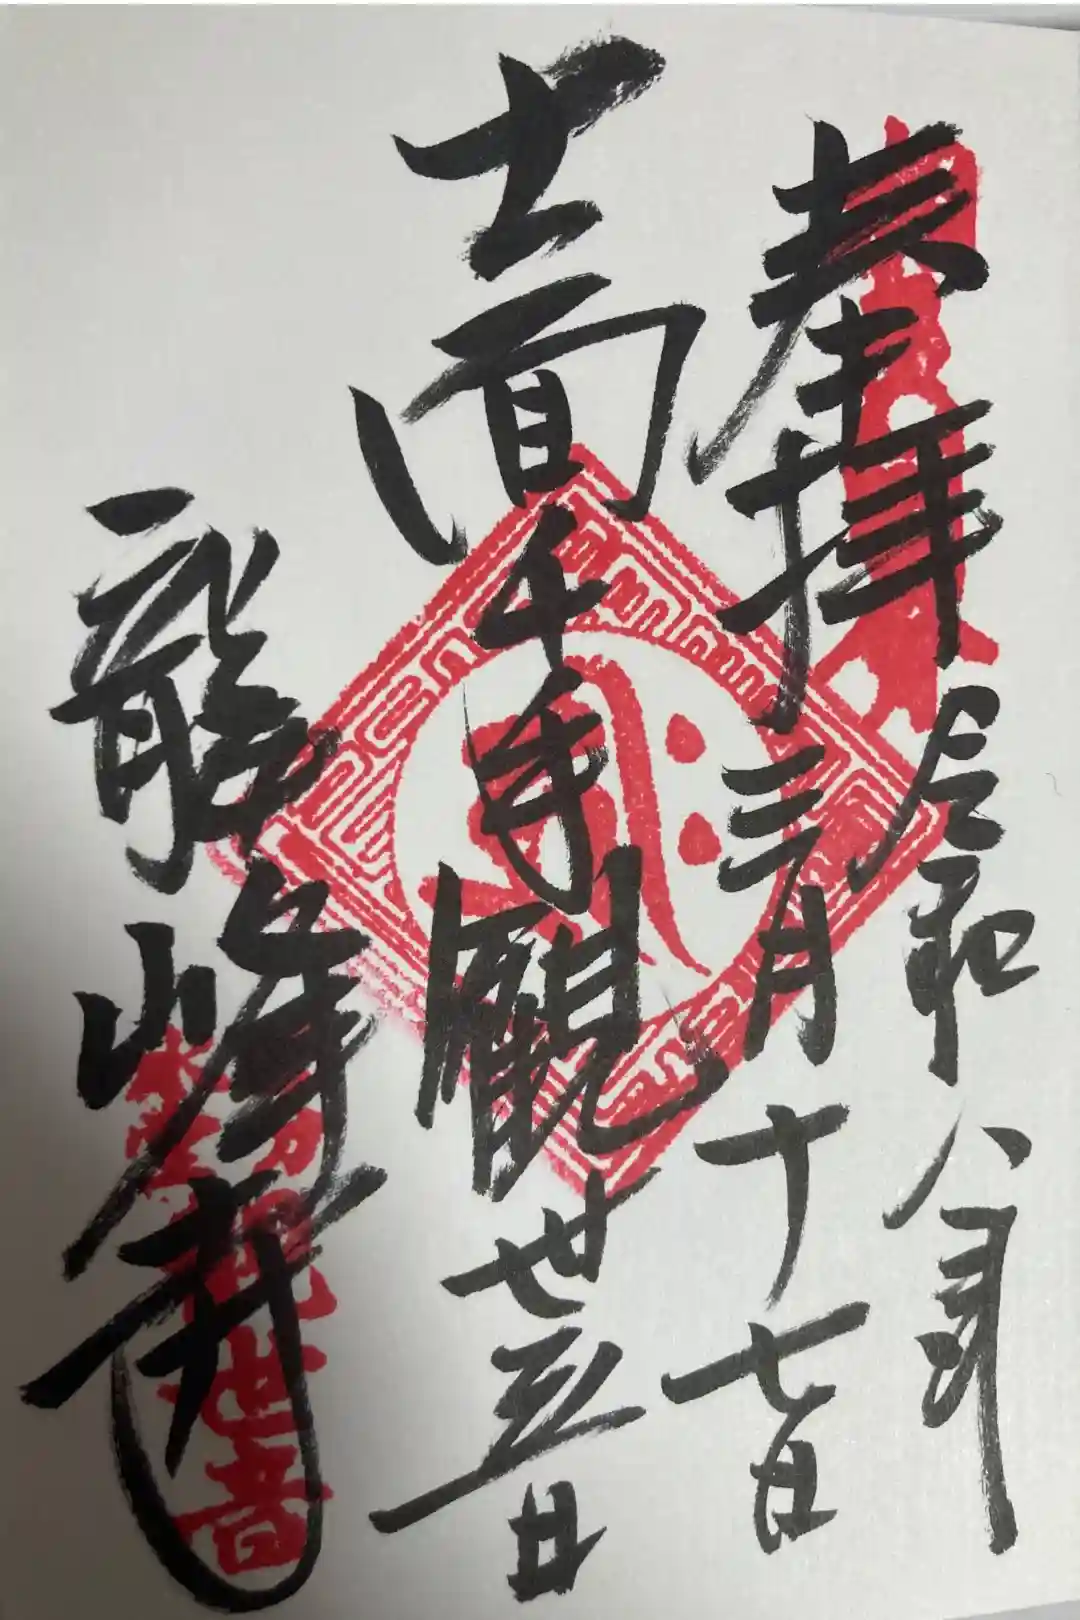 奉拝
令和八年
三月十七日
十一面千手観世音
龍峰寺